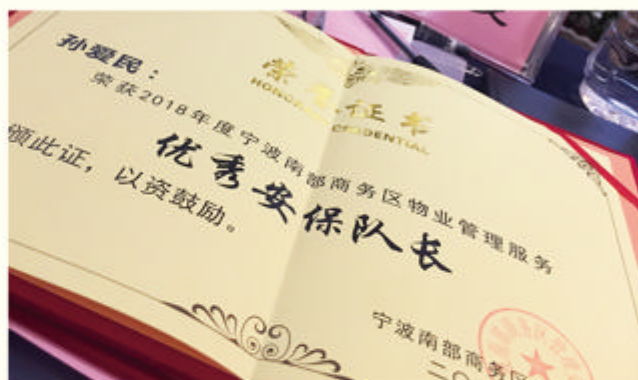 荣誉证书
HONORARY CREDENTIAL
孙爱民：
荣获2018年度宁波南部商务区物业管理服务
优秀安保队长
颁此证，以资鼓励。
宁波南部商务区
二〇